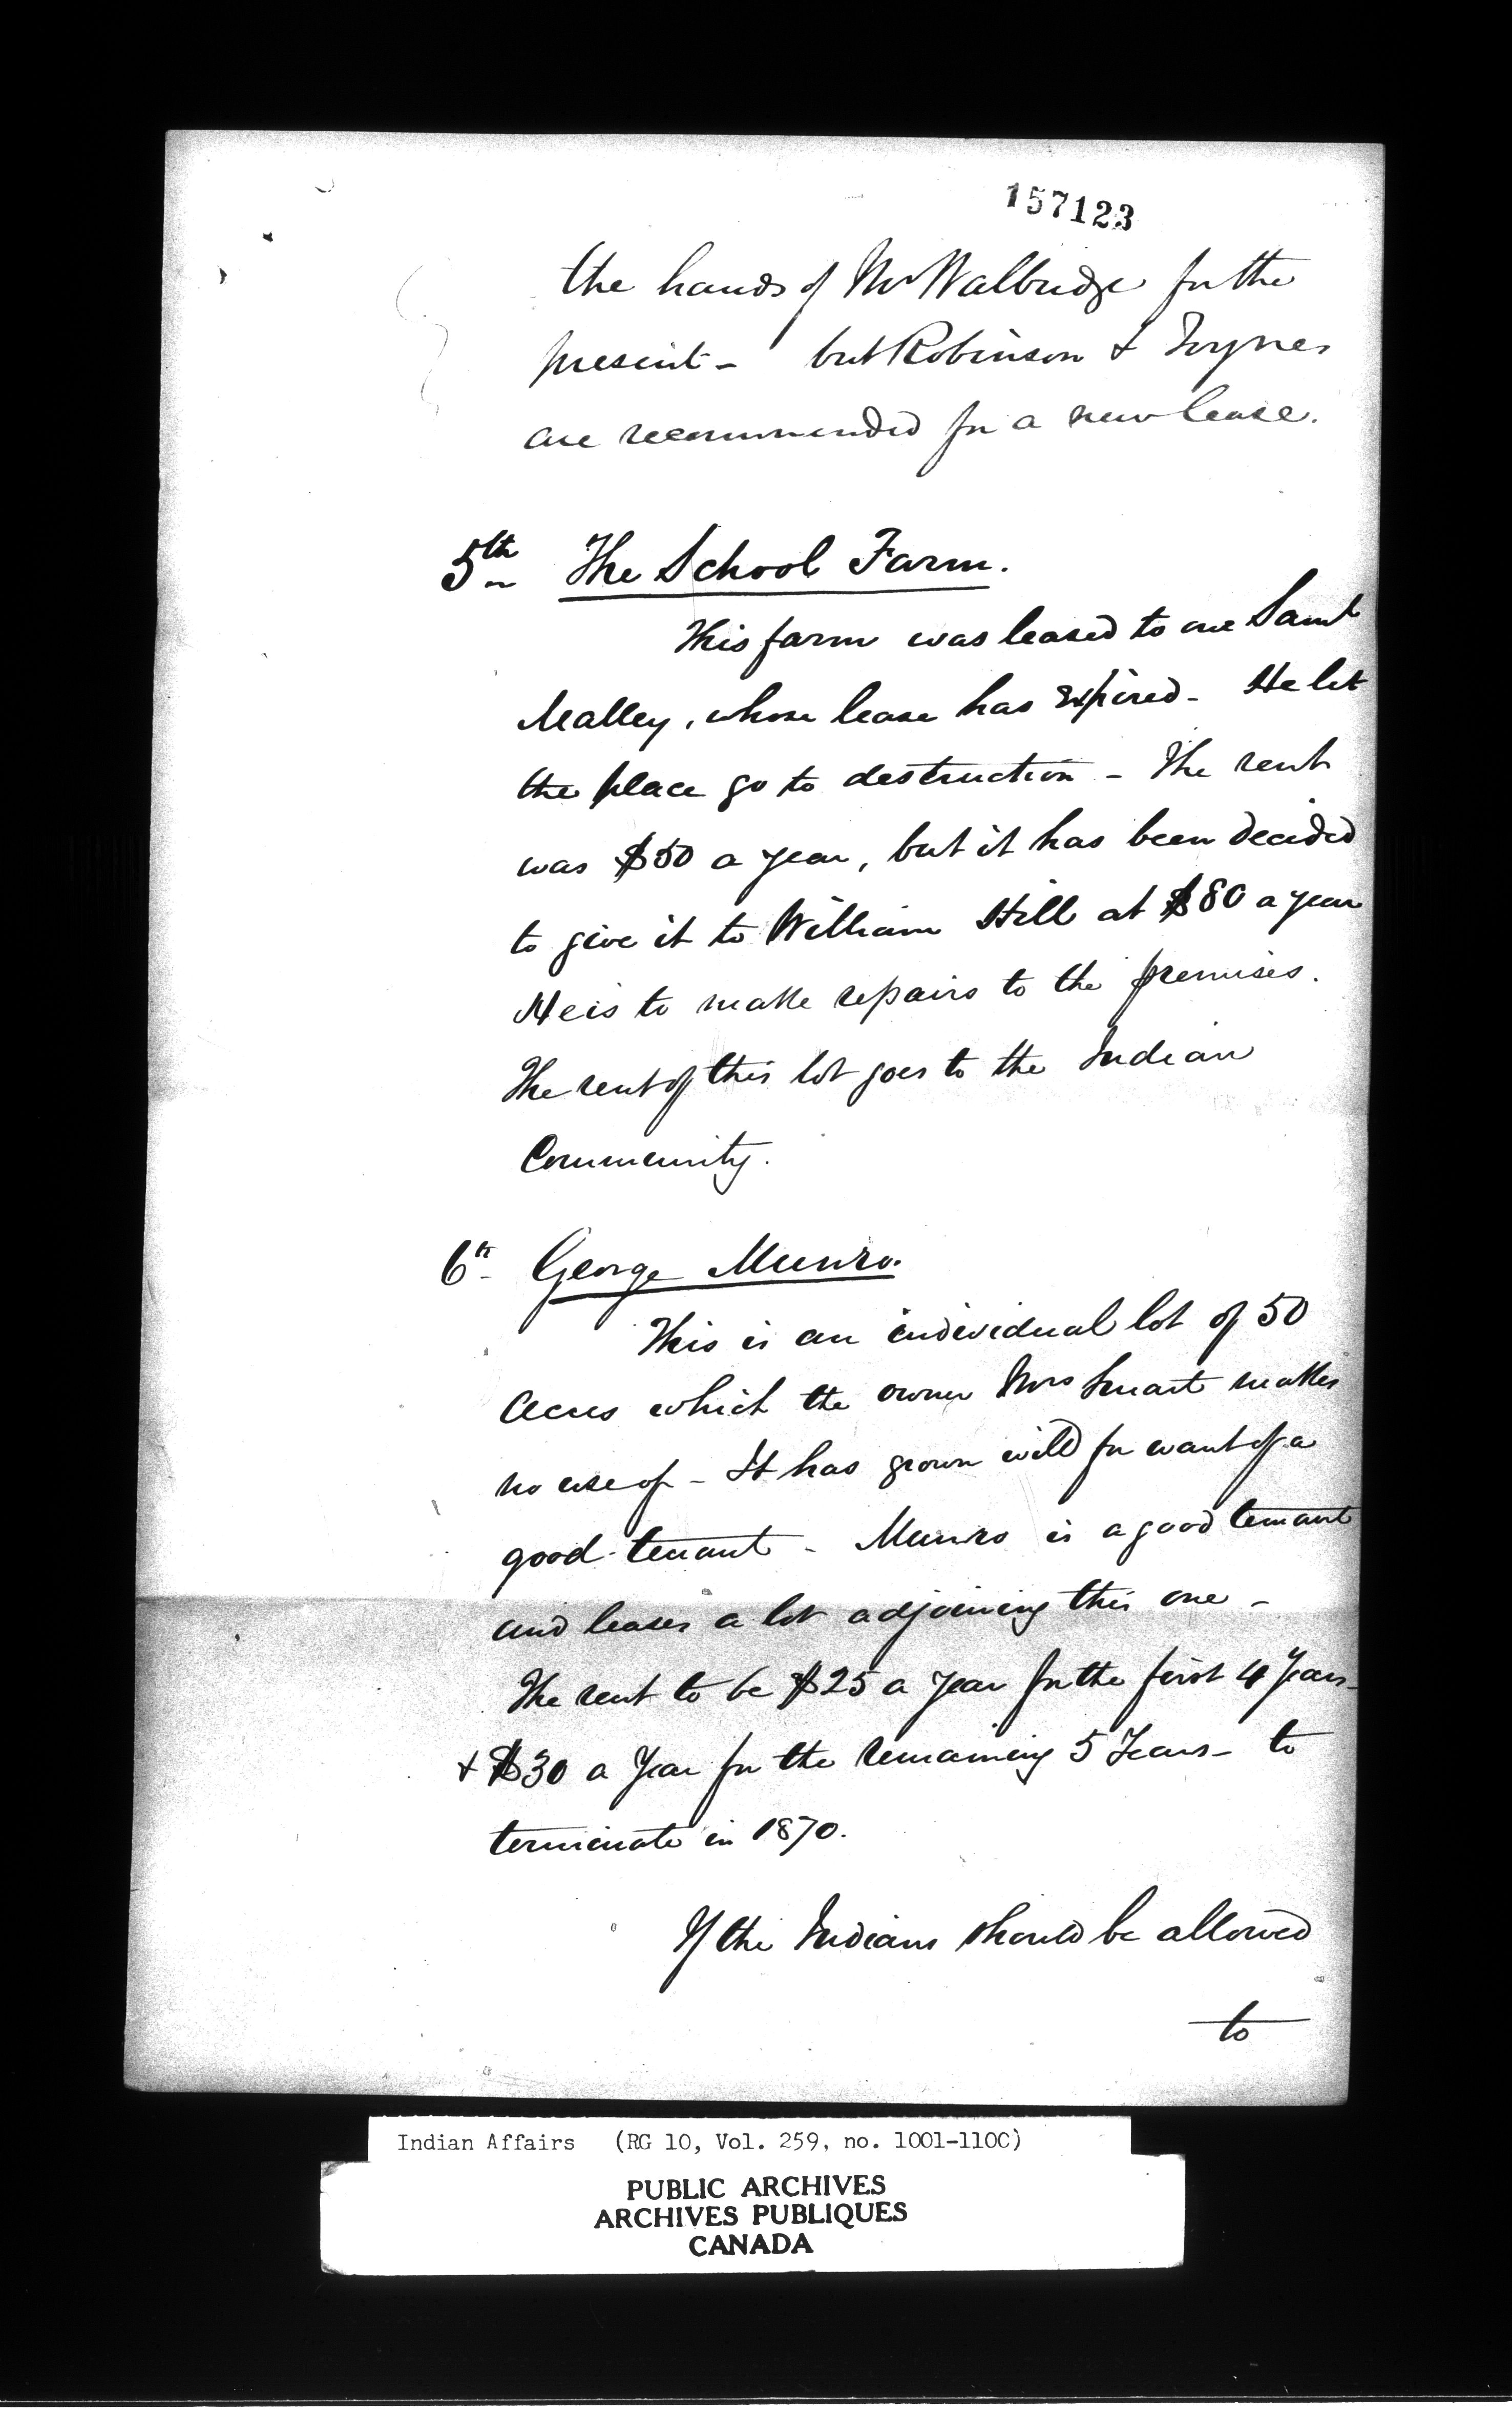 157123
the hands of Mr Walbridge for the
present - but Robinson &
are recommended for a new lease.
5th The School Farm.
This farm was leased to one Saml
Malley, whose lease has expired - He let
the place go to destruction - The rent
was $50 a year, but it has been decided
to give it to William Hill at $80 a year
He is to make repairs to the premises.
The rent of this lot goes to the Indian
Community.
6th George Munro.
This is an individual lot of 50
Acres which the owner Mrs Smart makes
no use of - It has grown wild for want of a
good tenant - Munro is a good tenant
and leases a lot adjoining this one -
The rent to be $25 a year for the first 4 Years -
& $30 a Year for the remaining 5 Years - to
terminate in 1870.
If the Indians should be allowed
to
Indian Affairs (RG 10, Vol. 259, no. 1001-1100)
PUBLIC ARCHIVES
ARCHIVES PUBLIQUES
CANADA